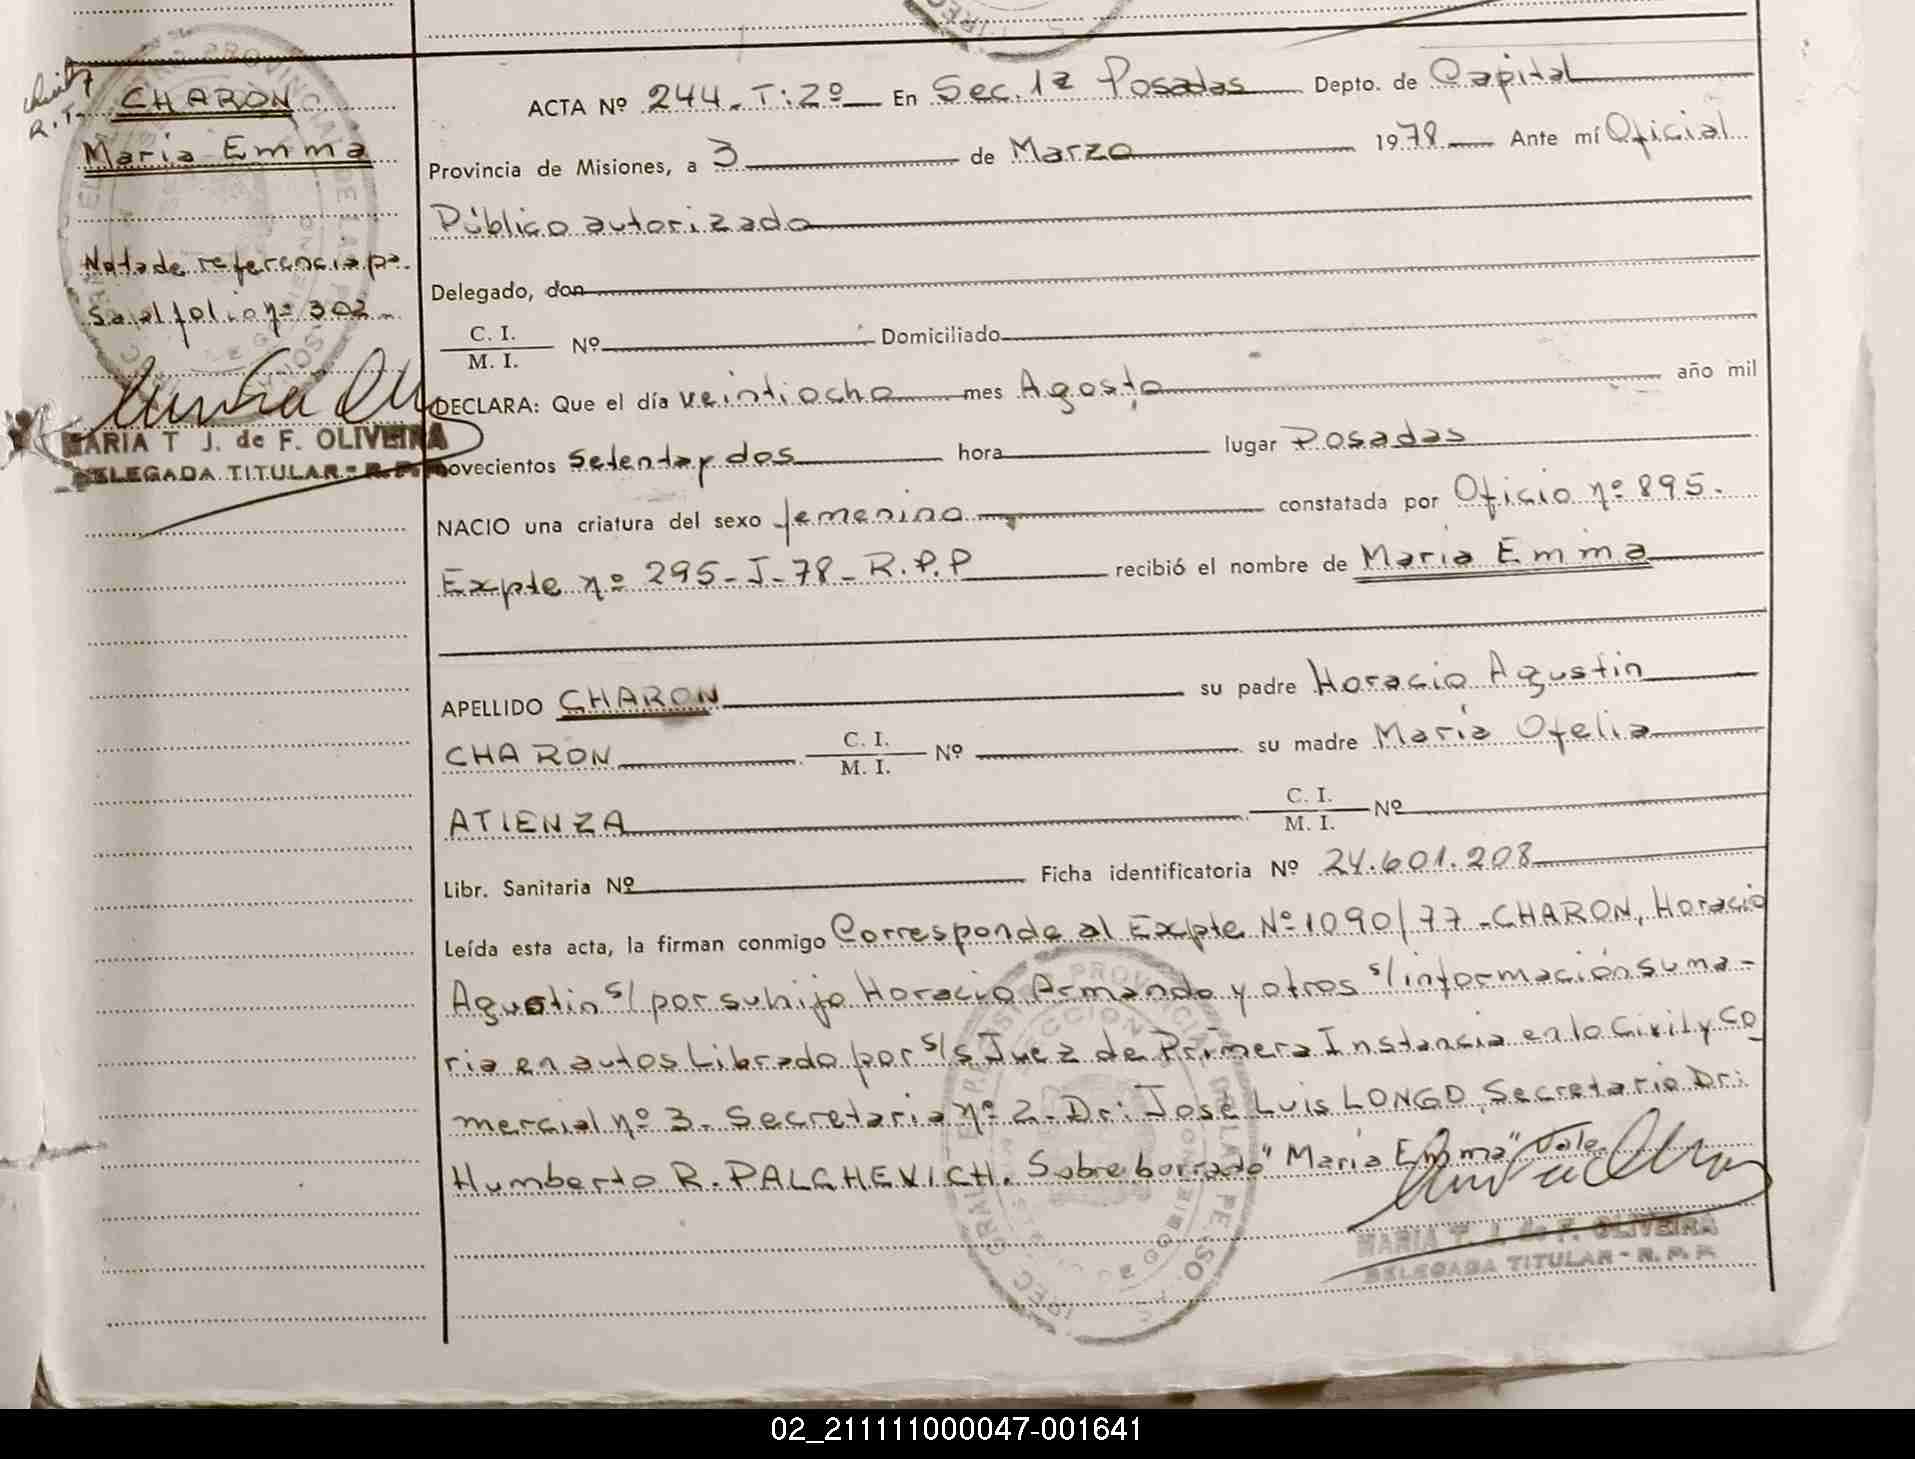 CHARON
Maria Emma
Nota de referencia pa-
sa al folio nº 302
MARIA T J. de F. OLIVEIRA
DELEGADA TITULAR - R. P.
ACTA Nº 244. T: 2º En Sec. 1ª Posadas Depto. de Capital
Provincia de Misiones, a 3 de Marzo 1978 Ante mí Oficial
Público autorizado
Delegado, don
C. I.
M. I. Nº Domiciliado
DECLARA: Que el día veintiocho mes Agosto año mil
novecientos setenta y dos hora lugar Posadas
NACIO una criatura del sexo femenino constatada por Oficio nº 895.
Expte nº 295-J-78-R.P.P recibió el nombre de Maria Emma
APELLIDO CHARON su padre Horacio Agustin
CHARON C. I. M. I. Nº su madre Maria Ofelia
ATIENZA C. I. M. I. Nº
Libr. Sanitaria Nº Ficha identificatoria Nº 24.601.208
Leída esta acta, la firman conmigo Corresponde al Expte Nº 1090/77 - CHARON, Horacio
Agustin s/ por su hijo Horacio Armando y otros s/ información suma-
ria en autos Librado por s/s Juez de Primera Instancia en lo Civil y Co
mercial nº 3. Secretaria nº 2. Dr: José Luis LONGO, Secretario Dr:
Humberto R. PALCHEVICH. Sobre borrado "Maria Emma" Vale
MARIA T. J. de F. OLIVEIRA
DELEGADA TITULAR - R. P. P.
02_211111000047-001641